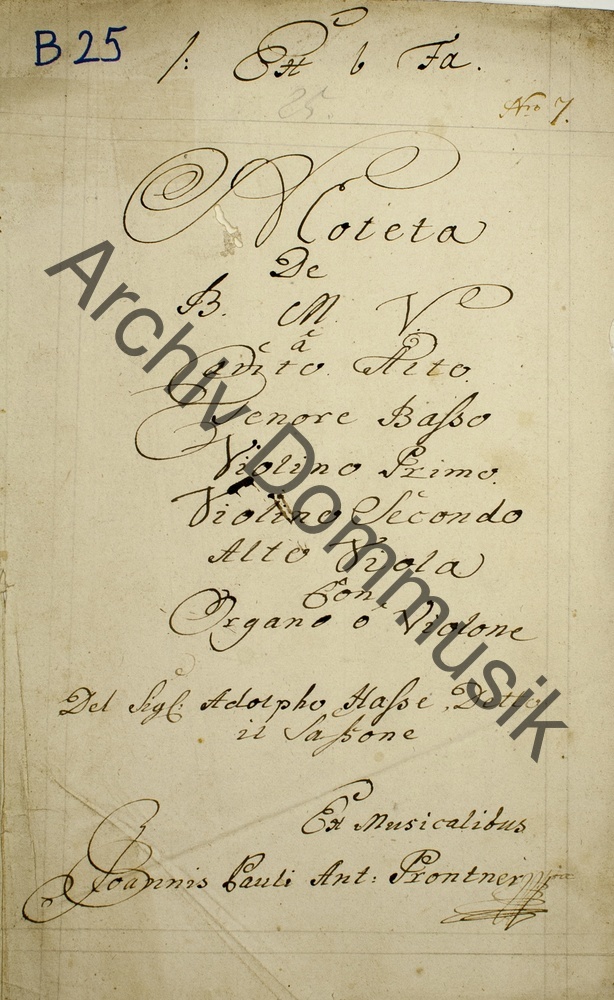 B 25
/: Ex b Fa.
25.
Nro 7.
Moteta
De
B. M. V.
à
Canto Alto
Tenore Basso
Violino Primo.
Violino Secondo
Alto Viola
Con
Organo o Violone
Del Sigl: Adolpho Hasse, Detto
il Sassone
Ex Musicalibus
Joannis Pauli Ant: Prontner
Archiv Dommusik